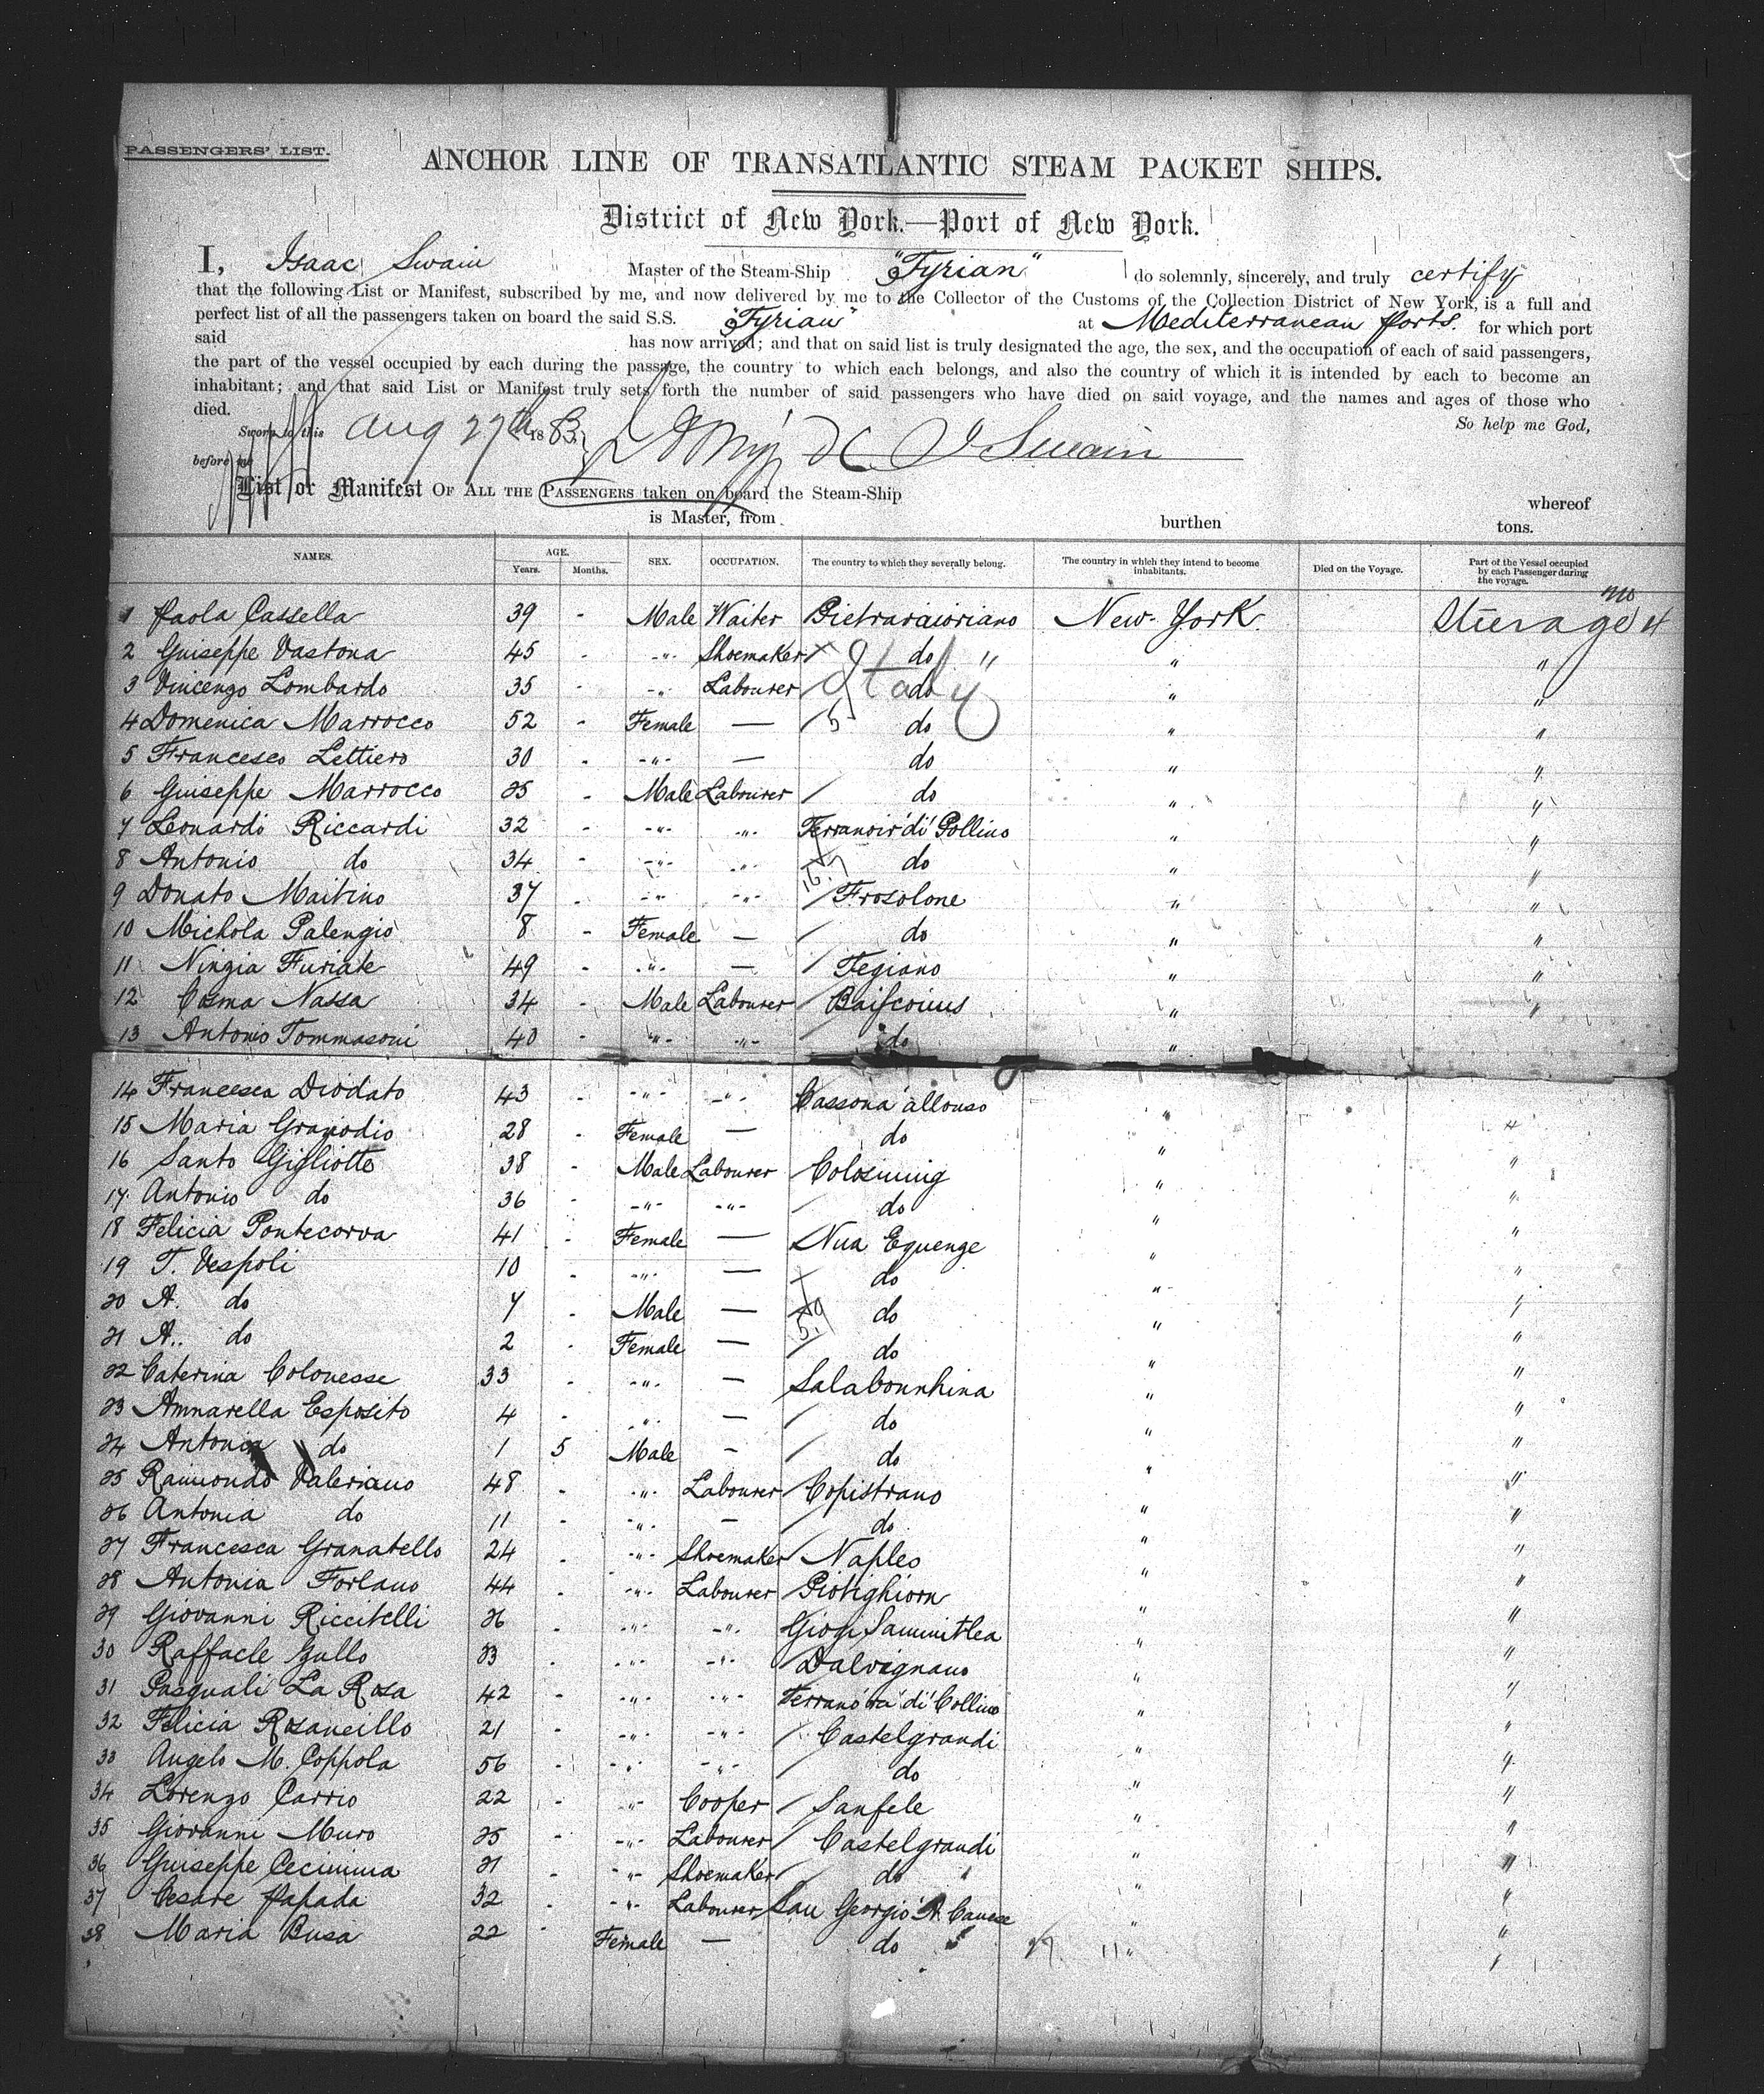 PASSENGERS' LIST.
ANCHOR LINE OF TRANSATLANTIC STEAM PACKET SHIPS.
District of New York.—Port of New York.
I, Isaac Swain Master of the Steam-Ship "Tyrian" do solemnly, sincerely, and truly certify
that the following List or Manifest, subscribed by me, and now delivered by me to the Collector of the Customs of the Collection District of New York, is a full and
perfect list of all the passengers taken on board the said S.S. "Tyrian" at Mediterranean Ports. for which port
said has now arrived; and that on said list is truly designated the age, the sex, and the occupation of each of said passengers,
the part of the vessel occupied by each during the passage, the country to which each belongs, and also the country of which it is intended by each to become an
inhabitant; and that said List or Manifest truly sets forth the number of said passengers who have died on said voyage, and the names and ages of those who
died. So help me God,
Sworn to this Aug 27th 1883, I Swain
before me
List or Manifest OF ALL THE PASSENGERS taken on board the Steam-Ship whereof
is Master, from burthen tons.
NAMES. AGE. Years. Months. SEX. OCCUPATION. The country to which they severally belong. The country in which they intend to become inhabitants. Died on the Voyage. Part of the Vessel occupied by each Passenger during the voyage.
1 Paola Cassella 39 - Male Waiter New-York Stürage
2 Guiseppe Vastona 45 - -"- Shoemaker do " " "
Italy
3 Vincenzo Lombardo 35 - -"- Labourer do " "
4 Domenica Marrocco 52 - Female — do " "
5 Francesco Lettiero 30 - -"- — do " "
6 Guiseppe Marrocco 25 - Male Labourer do " "
7 Leonardo Riccardi 32 - -"- -"- di Pollino " "
8 Antonio do 34 - -"- -"- do " "
9 Donato Maitino 37 - -"- -"- Frosolone " "
10 Michola Palengio 8 - Female — do " "
11 Ninzia Furiate 49 - -"- — Tegiano " "
12 Cosma Nassa 34 - Male Labourer " "
13 Antonio Tommasoni 40 - -"- -"- do "
14 Francesca Diodato 43 - -"- -"- Cassona allonso " "
15 Maria Graniodio 28 - Female — do " "
16 Santo Gigliotte 38 - Male Labourer " "
17 Antonio do 36 - -"- -"- do " "
18 Felicia Pontecorva 41 - Female — Nua Equenge " "
19 T. Vespoli 10 - -"- — do " "
20 A. do 7 - Male — do " "
21 A.. do 2 - Female — do " "
22 Caterina Colonesse 33 - -"- — Salabonnhina " "
23 Annarella Esposito 4 - -"- — do " "
24 Antonia do 1 5 Male - do " "
25 Raimondo Valeriano 48 - -"- Labourer Copistrano " "
26 Antonia do 11 - -"- — do " "
27 Francesca Granatello 24 - -"- Shoemaker Naples " "
28 Antonia Forlano 44 - -"- Labourer " "
29 Giovanni Riccitelli 26 - -"- -"- " "
30 Raffaele Gullo 23 - -"- -"- Dalvignano " "
31 Pasquali La Rosa 42 - -"- -"- Terranova di Collino " "
32 Felicia Rosaneillo 21 - -"- -"- Castelgrandi " "
33 Angelo M. Coppola 56 - -"- -"- do " "
34 Lorenzo Carrio 22 - -"- Cooper Sanfele " "
35 Giovanni Muro 25 - -"- Labourer Castelgrandi " "
36 Guiseppe Cecinima 21 - -"- Shoemaker do " "
37 Cesare Papada 32 - -"- Labourer San Georgio " "
38 Maria Busa 22 - Female — do " "